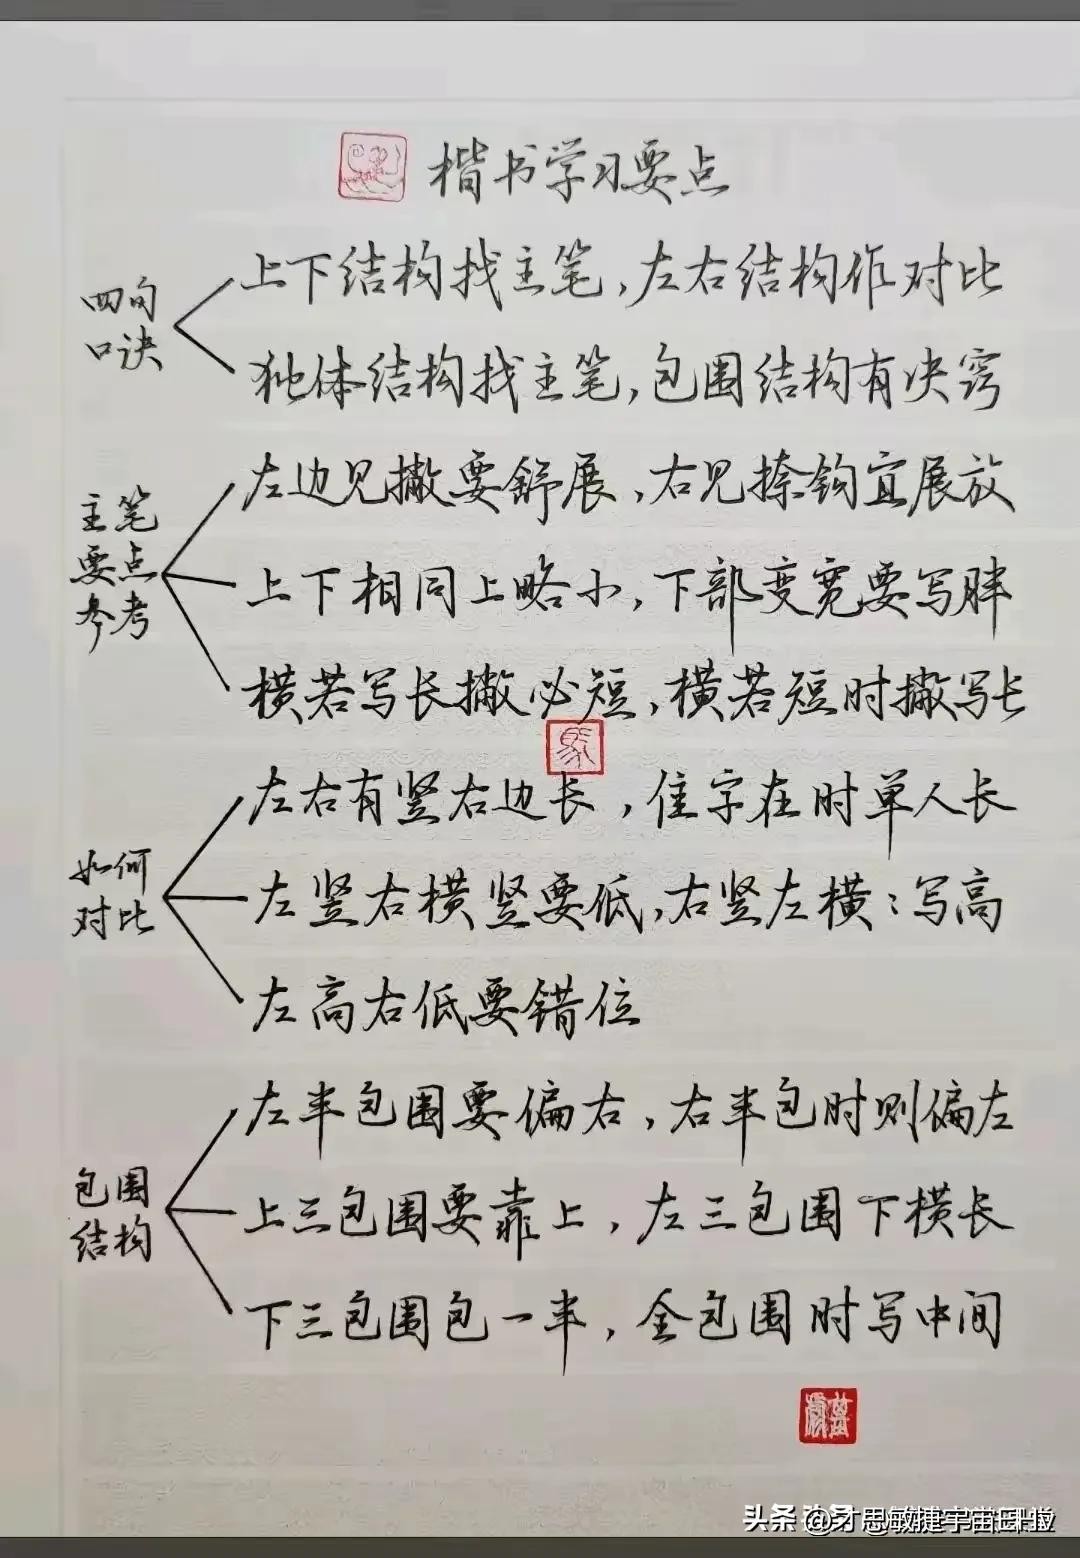 楷书学习要点
四句
口诀
上下结构找主笔，左右结构作对比
独体结构找主笔，包围结构有决窍
主笔
要点
参考
左边见撇要舒展，右见捺钩宜展放
上下相同上略小，下部变宽要写胖
横若写长撇必短，横若短时撇写长
如何
对比
左右有竖右边长，佳字在时单人长
左竖右横竖要低，右竖左横：写高
左高右低要错位
包围
结构
左半包围要偏右，右半包时则偏左
上三包围要靠上，左三包围下横长
下三包围包一半，全包围时写中间
头条 @才思敏捷宇宙